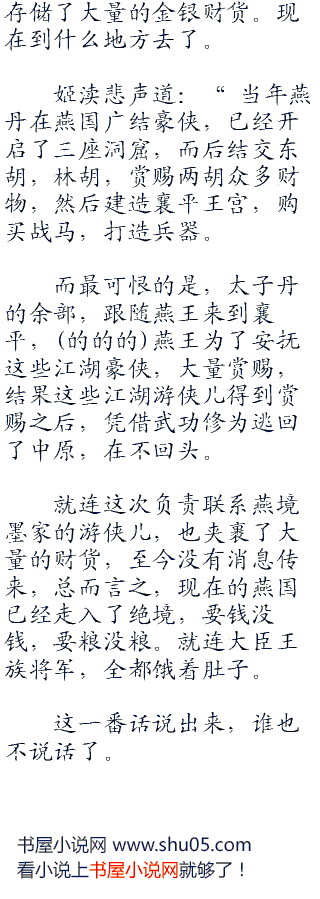 存储了大量的金银财货。现
在到什么地方去了。
姬渎悲声道：“ 当年燕
丹在燕国广结豪侠，已经开
启了三座洞窟，而后结交东
胡，林胡，赏赐两胡众多财
物，然后建造襄平王宫，购
买战马，打造兵器。
而最可恨的是，太子丹
的余部，跟随燕王来到襄
平，(的的的)燕王为了安抚
这些江湖豪侠，大量赏赐，
结果这些江湖游侠儿得到赏
赐之后，凭借武功修为逃回
了中原，在不回头。
就连这次负责联系燕境
墨家的游侠儿，也夹裹了大
量的财货，至今没有消息传
来，总而言之，现在的燕国
已经走入了绝境，要钱没
钱，要粮没粮。就连大臣王
族将军，全都饿着肚子。
这一番话说出来，谁也
不说话了。
书屋小说网 www.shu05.com
看小说上书屋小说网就够了！